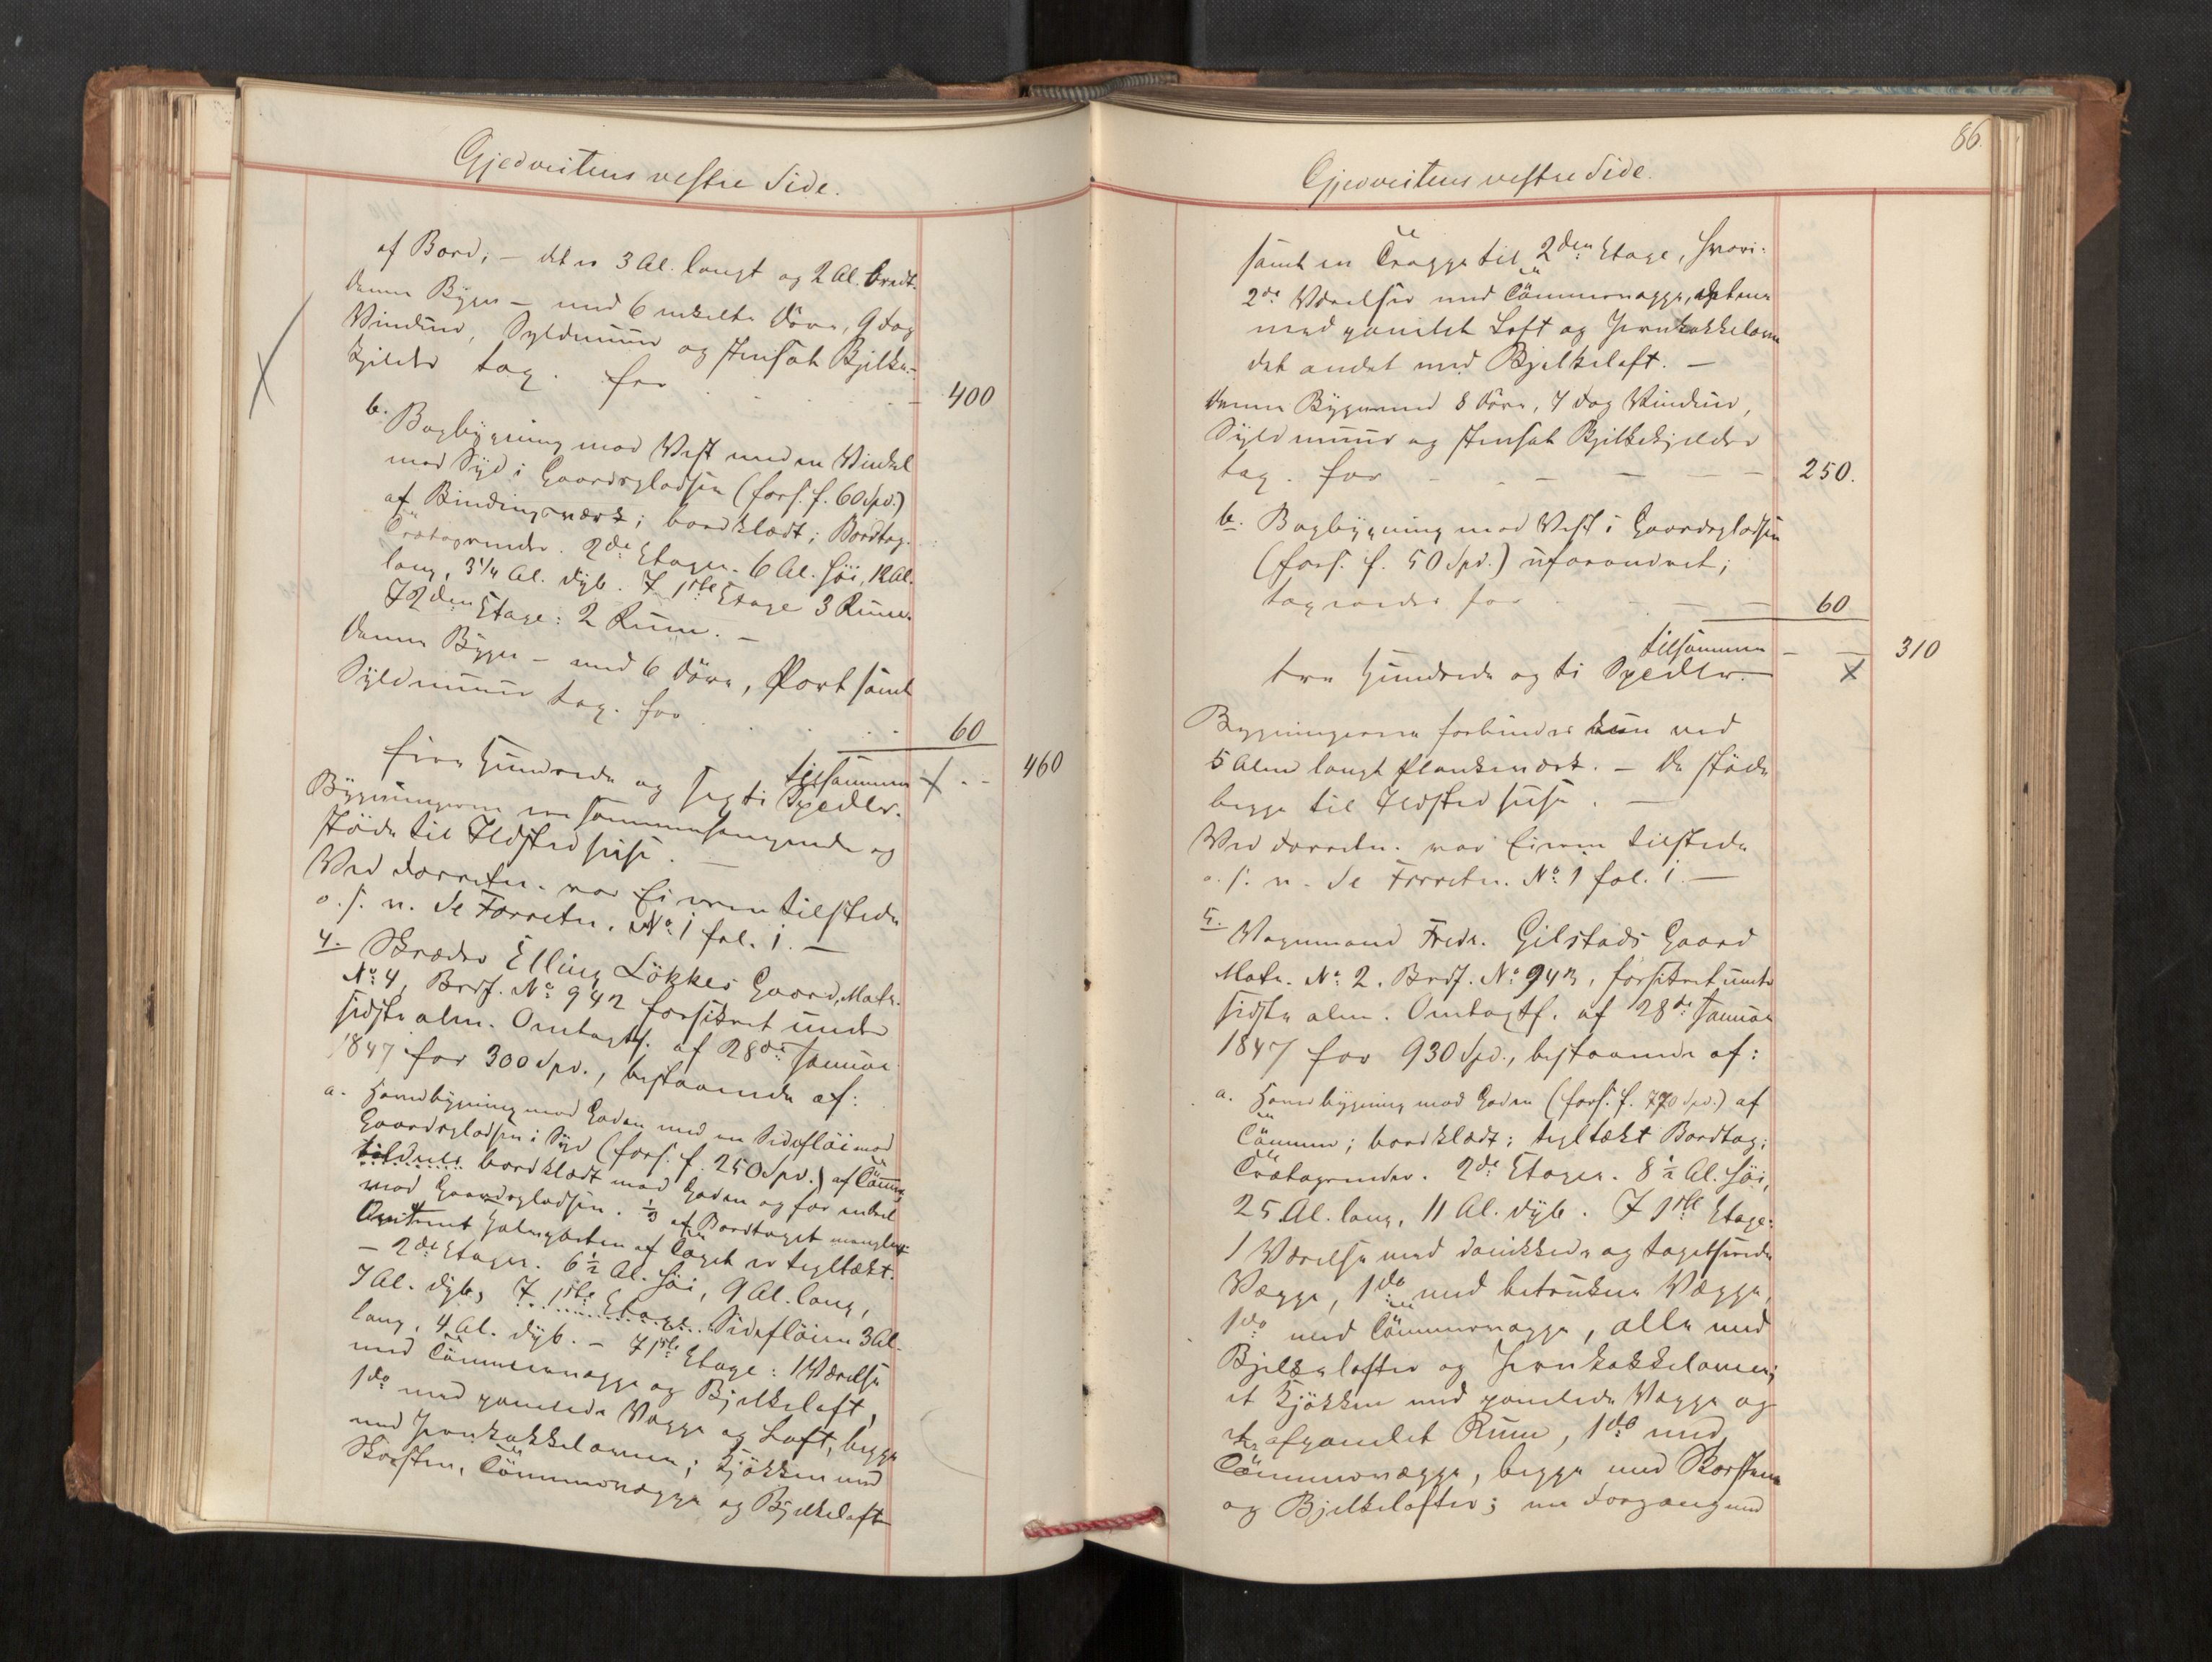 Gjedveitens vestre Side.
af Bord; – det er 3 Al. langt og 2 Al. bredt.
Denne Bygn – med 6 enkelte Döre, 9 Fag
Vinduer, Syldmuur og steensat Bjelke-
kjelder tax. for 400
b. Bagbygning mod Vest med en Vinkel
mod Syd i Gaardspladsen (fors. f. 60 Spd.)
af Bindingsværk; bordklædt; Bordtag.
Trætagrender. 2de Etager. 6 Al. høi, 12 Al.
lang, 3¼ Al. dyb. I 1ste Etage 3 Rum.
I 2den Etage: 2 Rum. –
Denne Bygn – med 6 Döre, Port samt
Syldmuur tax. for 60
tilsammen 460
fire Hundrede og sexti Spedlr.
Bygningerne ere sammenhængende og
støde til Ildstedhuse. –
Ved Forretn. var Eieren tilstede
o. s. v. Se Forretn. No. 1 fol. 1. –
4. Skræder Elling Lökkes Gaard, Matr.
No. 4, Brdf. No. 942 forsikret under
sidste alm. Omtaxtf. af 28de Januar
1847 for 300 Spd., bestaaende af:
a. Forbygning mod Gaden med en Sidefløi mod
Gaardspladsen i Syd (fors. f. 250 Spd.) af Tömmer,
tildeels bordklædt mod Gaden og for enkel
mod Gaardspladsen. ⅓ af Bordtaget mangler
Resten af Taget er tegltækt.
– 2de Etager. 6½ Al. høi, 9 Al. lang,
7 Al. dyb, I 1ste Etage Sidefløien 3 Al.
lang, 4 Al. dyb. – I 1ste Etage: 1 Værelse
med Tömmervægge og Bjelkeloft,
1 do med panelede Vægge og Loft, begge
med Jernkakkelovne; Kjökken med
Skorsten, Tömmervægge og Bjelkeloft
86.
Gjedveitens vestre Side.
samt en Trappe til 2den Etage, hvori:
2de Værelser med Tömmervægge, det ene
med panelet Loft og Jernkakkelovn
det andet med Bjelkeloft. –
Denne Bygn med 8 Döre, 7 Fag Vinduer,
Syldmuur og steensat Bjelkekjelder
tax. for 250.
b. Bagbygning mod Vest i Gaardspladsen
(fors. f. 50 Spd.) uforandret;
taxeredes for 60
tilsammen 310
tre Hundrede og ti Spedlr.
Bygningerne forbindes kun ved
5 Alen langt Plankeværk. – De støde
begge til Ildstedhuse. –
Ved Forretn. var Eieren tilstede
o. s. v. Se Forretn. No. 1 fol. 1. –
5. Vognmand Fredr. Gilstads Gaard
Matr. No. 2. Brdf. No. 943, forsikret under
sidste alm. Omtaxtf. af 28de Januar
1847 for 930 Spd., bestaaende af:
a. Forbygning mod Gaden (fors. f. 770 Spd.) af
Tömmer; bordklædt; tegltækt Bordtag;
Trætagrender. 2de Etager. 8½ Al. høi,
25 Al. lang, 11 Al. dyb. I 1ste Etage:
1 Værelse med donkede og tapetserede
Vægge, 1 do med betrukne Vægge,
1 do med Tömmervægge, alle med
Bjelkelofter og Jernkakkelovne;
et Kjökken med panelede Vægge og
et afpanelet Rum, 1 do med
Tömmervægge, begge med Skorstene
og Bjelkelofter; en Forgang med